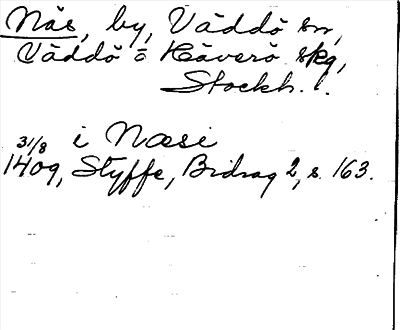 Näs, by, Väddö sn,
Väddö o Häverö skg,
Stockh. l.
31/8 i Næsi
1409, Styffe, Bidrag 2, s. 163.